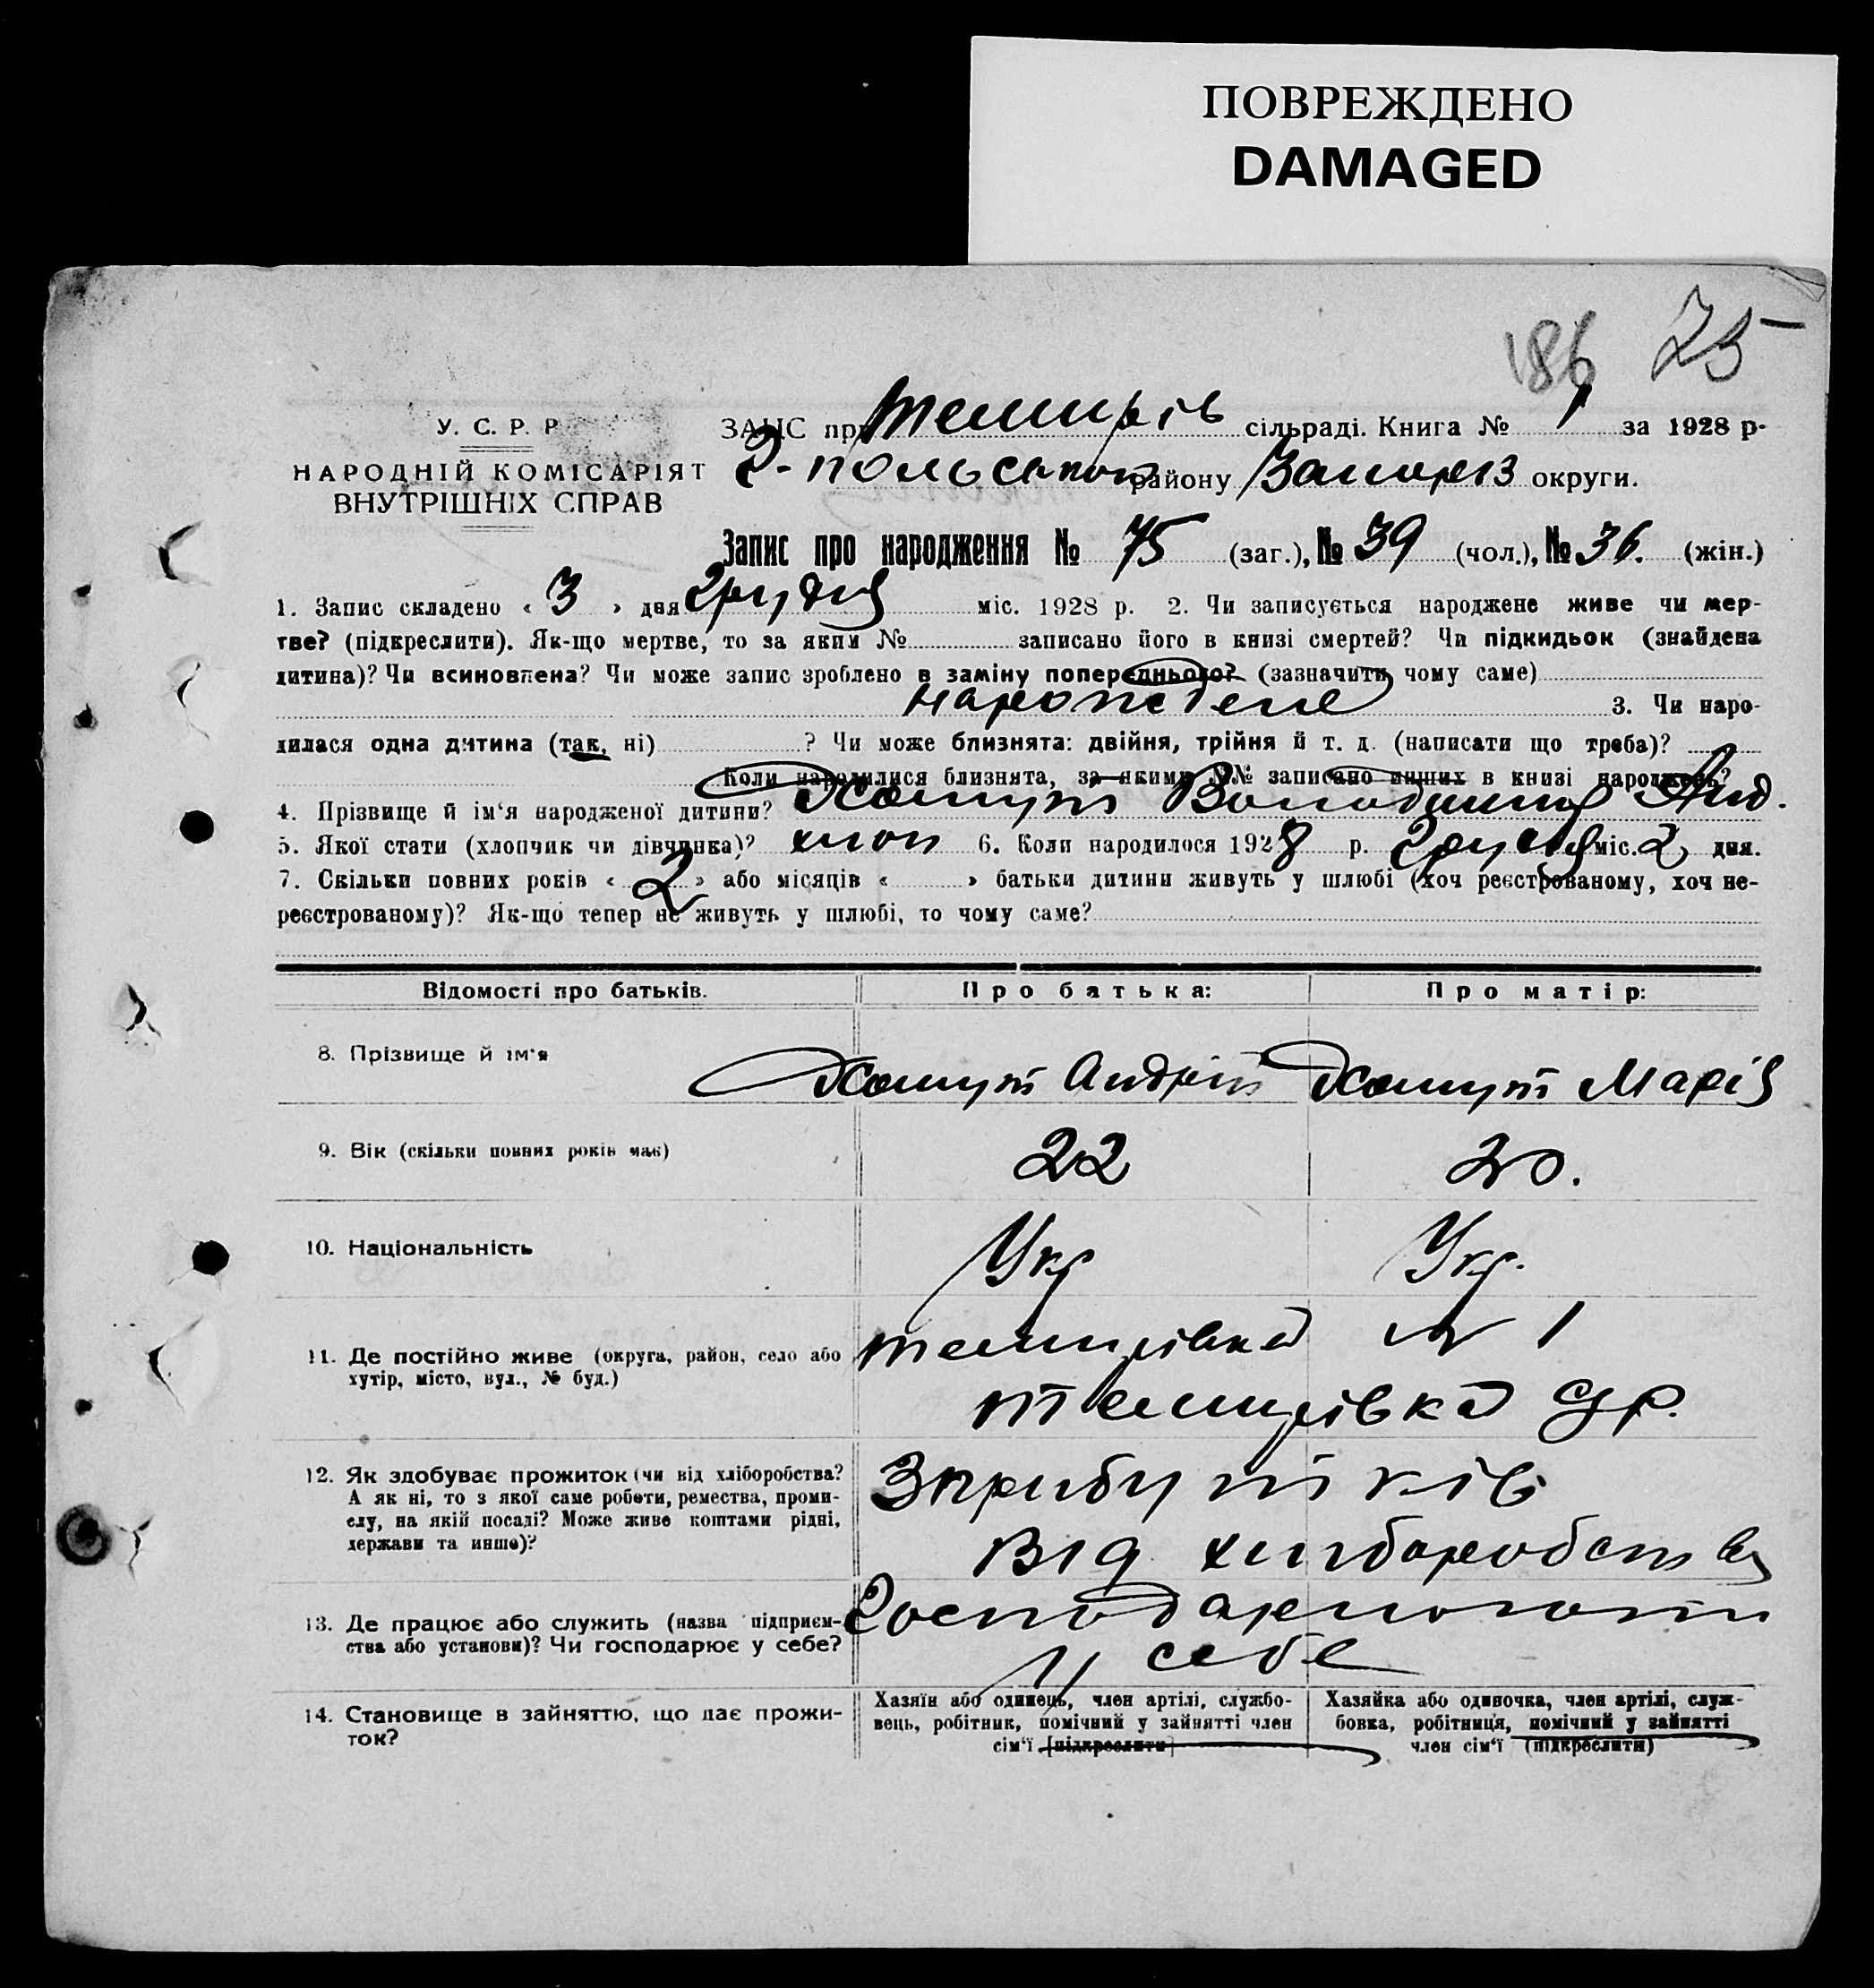 ПОВРЕЖДЕНО
DAMAGED
186 75
У. С. Р. Р.
НАРОДНІЙ КОМІСАРІЯТ
ВНУТРІШНІХ СПРАВ
ЗАПС при Темирів сільраді. Книга № 1 за 1928 р.
Г-польском району Запоріз округи.
Запис про народження № 75 (заг.), № 39 (чол.), № 36. (жін.)
1. Запис складено « 3 » дня Грудня міс. 1928 р. 2. Чи записується народжене живе чи мер-
тве? (підкреслити). Як-що мертве, то за яким № записано його в книзі смертей? Чи підкидьок (знайдена
дитина)? Чи всиновлена? Чи може запис зроблено в заміну попереднього? (зазначити чому саме)
народжене 3. Чи наро-
дилася одна дитина (так, ні) ? Чи може близнята: двійня, трійня й т. д. (написати що треба)?
Коли народилися близнята, за якими №№ записано инших в книзі народжень?
4. Прізвище й ім‘я народженої дитини? Хомут Володимир Анд.
5. Якої стати (хлопчик чи дівчинка)? хлоп 6. Коли народилося 1928 р. Грудня міс. 2 дня.
7. Скільки повних років « 2 » або місяців « » батьки дитини живуть у шлюбі (хоч реєстрованому, хоч не-
реєстрованому)? Як-що тепер не живуть у шлюбі, то чому саме?
Відомості про батьків. Про батька: Про матір:
8. Прізвище й ім‘я Хомут Андрій Хомут Марія
9. Вік (скільки повних років має) 22 20.
10. Національність Укр Укр.
11. Де постійно живе (округа, район, село або
хутір, місто, вул., № буд.)
Темирівка № 1
Темирівка ср.
12. Як здобуває прожиток (чи від хліборобства?
А як ні, то з якої саме роботи, ремества, проми-
слу, на якій посаді? Може живе коштами рідні,
держави та инше)?
З прибутків
від хліборобства
13. Де працює або служить (назва підприєм-
ства або установи)? Чи господарює у себе?
у себе
14. Становище в зайняттю, що дає прожи-
ток?
Хазяїн або одинець, член артілі, службо-
вець, робітник, помічний у зайнятті член
сім‘ї [підкреслити]
Хазяйка або одиночка, член артілі, служ-
бовка, робітниця, помічний у зайнятті
член сім‘ї (підкреслити)